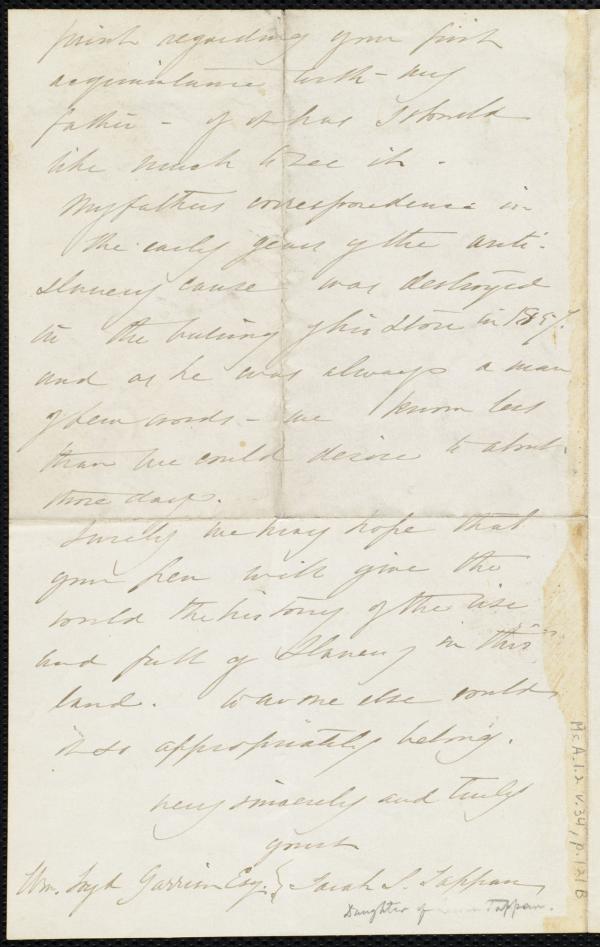 print regarding your first
acquaintance with - my
father - if it has I should
like much to see it -
My father's correspondence in
the early years of the anti-
slavery cause was destroyed
in the burning of his store in
and as he was always a man
of few words - we know less
than we could desire to about
those days.
Surely we may hope that
your pen will give the
world the history of the rise
and fall of Slavery in this
land. To no one else could
it so appropriately belong.
Very sincerely and truly
yours
Wm. Loyd Garrison Esq. } Sarah S. Tappan
Daughter of Tappan.
Ms. A.1.2 v.34, p.121B